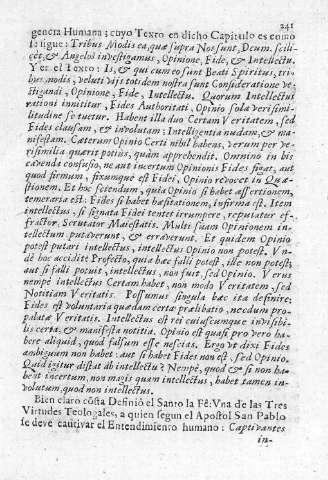 241
gencia Humana; cuyo Texto en dicho Capitulo es como
se sigue: Tribus Modis ea, quæ supra Nos sunt, Deum, scili-
cet, & Angelos investigamus, Opinione, Fide, & Intellectu.
Y es el Texto: Is, & qui cum eo sunt Beati Spiritus, tri-
bus modis, veluti vijs totidem nostra sunt Consideratione ve-
stigandi, Opinione, Fide, Intellectu. Quorum Intellectus
rationi innititur, Fides Authoritati, Opinio sola verisimi-
litudine se tuetur. Habent illa duo Certam Veritatem, sed
Fides clausam, & involutam; Intelligentia nudam, & ma-
nifestam. Cæterum Opinio Certi nihil habens, verum per ve-
risimilia quærit potius, quàm apprehendit. Omnino in his
cavenda confusio, ne aut incertum Opinionis Fides figat, aut
quod firmum, fixumque est Fidei, Opinio revocet in Quæ-
stionem. Et hoc sciendum, quia Opinio si habet assertionem,
temeraria est: Fides si habet hæsitationem, infirma est. Item
intellectus, si signata Fidei tentet irrumpere, reputatur ef-
fractor, Scrutator Maiestatis. Multi suam Opinionem in-
tellectum putaverunt, & erraverunt. Et quidem Opinio
potest putari intellectus, intellectus Opinio non potest. Vn-
dè hoc accidit? Profecto, quia hæc falli potest, ille non potest,
aut si falli potuit, intellectus, non fuit, sed Opinio. Verus
nempè intellectus Certam habet, non modo Veritatem, sed
Notitiam Veritatis. Possumus singula hæc ita definire;
Fides est voluntaria quædam certa prælibatio, necdum pro-
palatæ Veritatis. Intellectus est rei cuiuscumque invisibi-
lis certa, & manifesta notitia. Opinio est quasi pro vero ha-
bere aliquid, quod falsum esse nescias. Ergo ut dixi Fides
ambiguum non habet: aut si habet Fides non est, sed Opinio.
Quid igitur distat ab intellectu? Nempè, quod & si non ha-
beat incertum, non magis quam intellectus, habet tamen in-
volutum, quod non intellectus.
Bien claro cõsta Definiò el Santo la Fè: Vna de las Tres
Virtudes Teologales, a quien segun el Apostol San Pablo
se deve cautivar el Entendimiento humano: Captivantes
in-